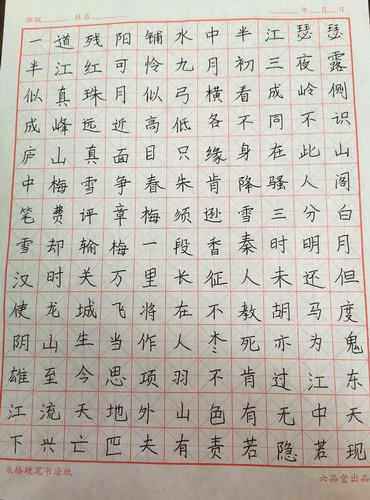 班级 姓名 年 月 日
一道残阳铺水中半江瑟瑟
半江红可怜九月初三夜露
似真珠月似弓横看成岭侧
成峰远近高低各不同不识
庐山真面目只缘身在此山
中梅雪争春朱肯降骚人阁
笔费评章梅须逊雪三分白
雪却输梅一段香秦时明月
汉时关万里长征人未还但
使龙城飞将在不教胡马度
阴山生当作人杰死亦为鬼
雄至今思项羽不肯过江东
江流天地外山色有无中天
下兴亡匹夫有责若隐若现
米格硬笔书法纸 六品堂出品